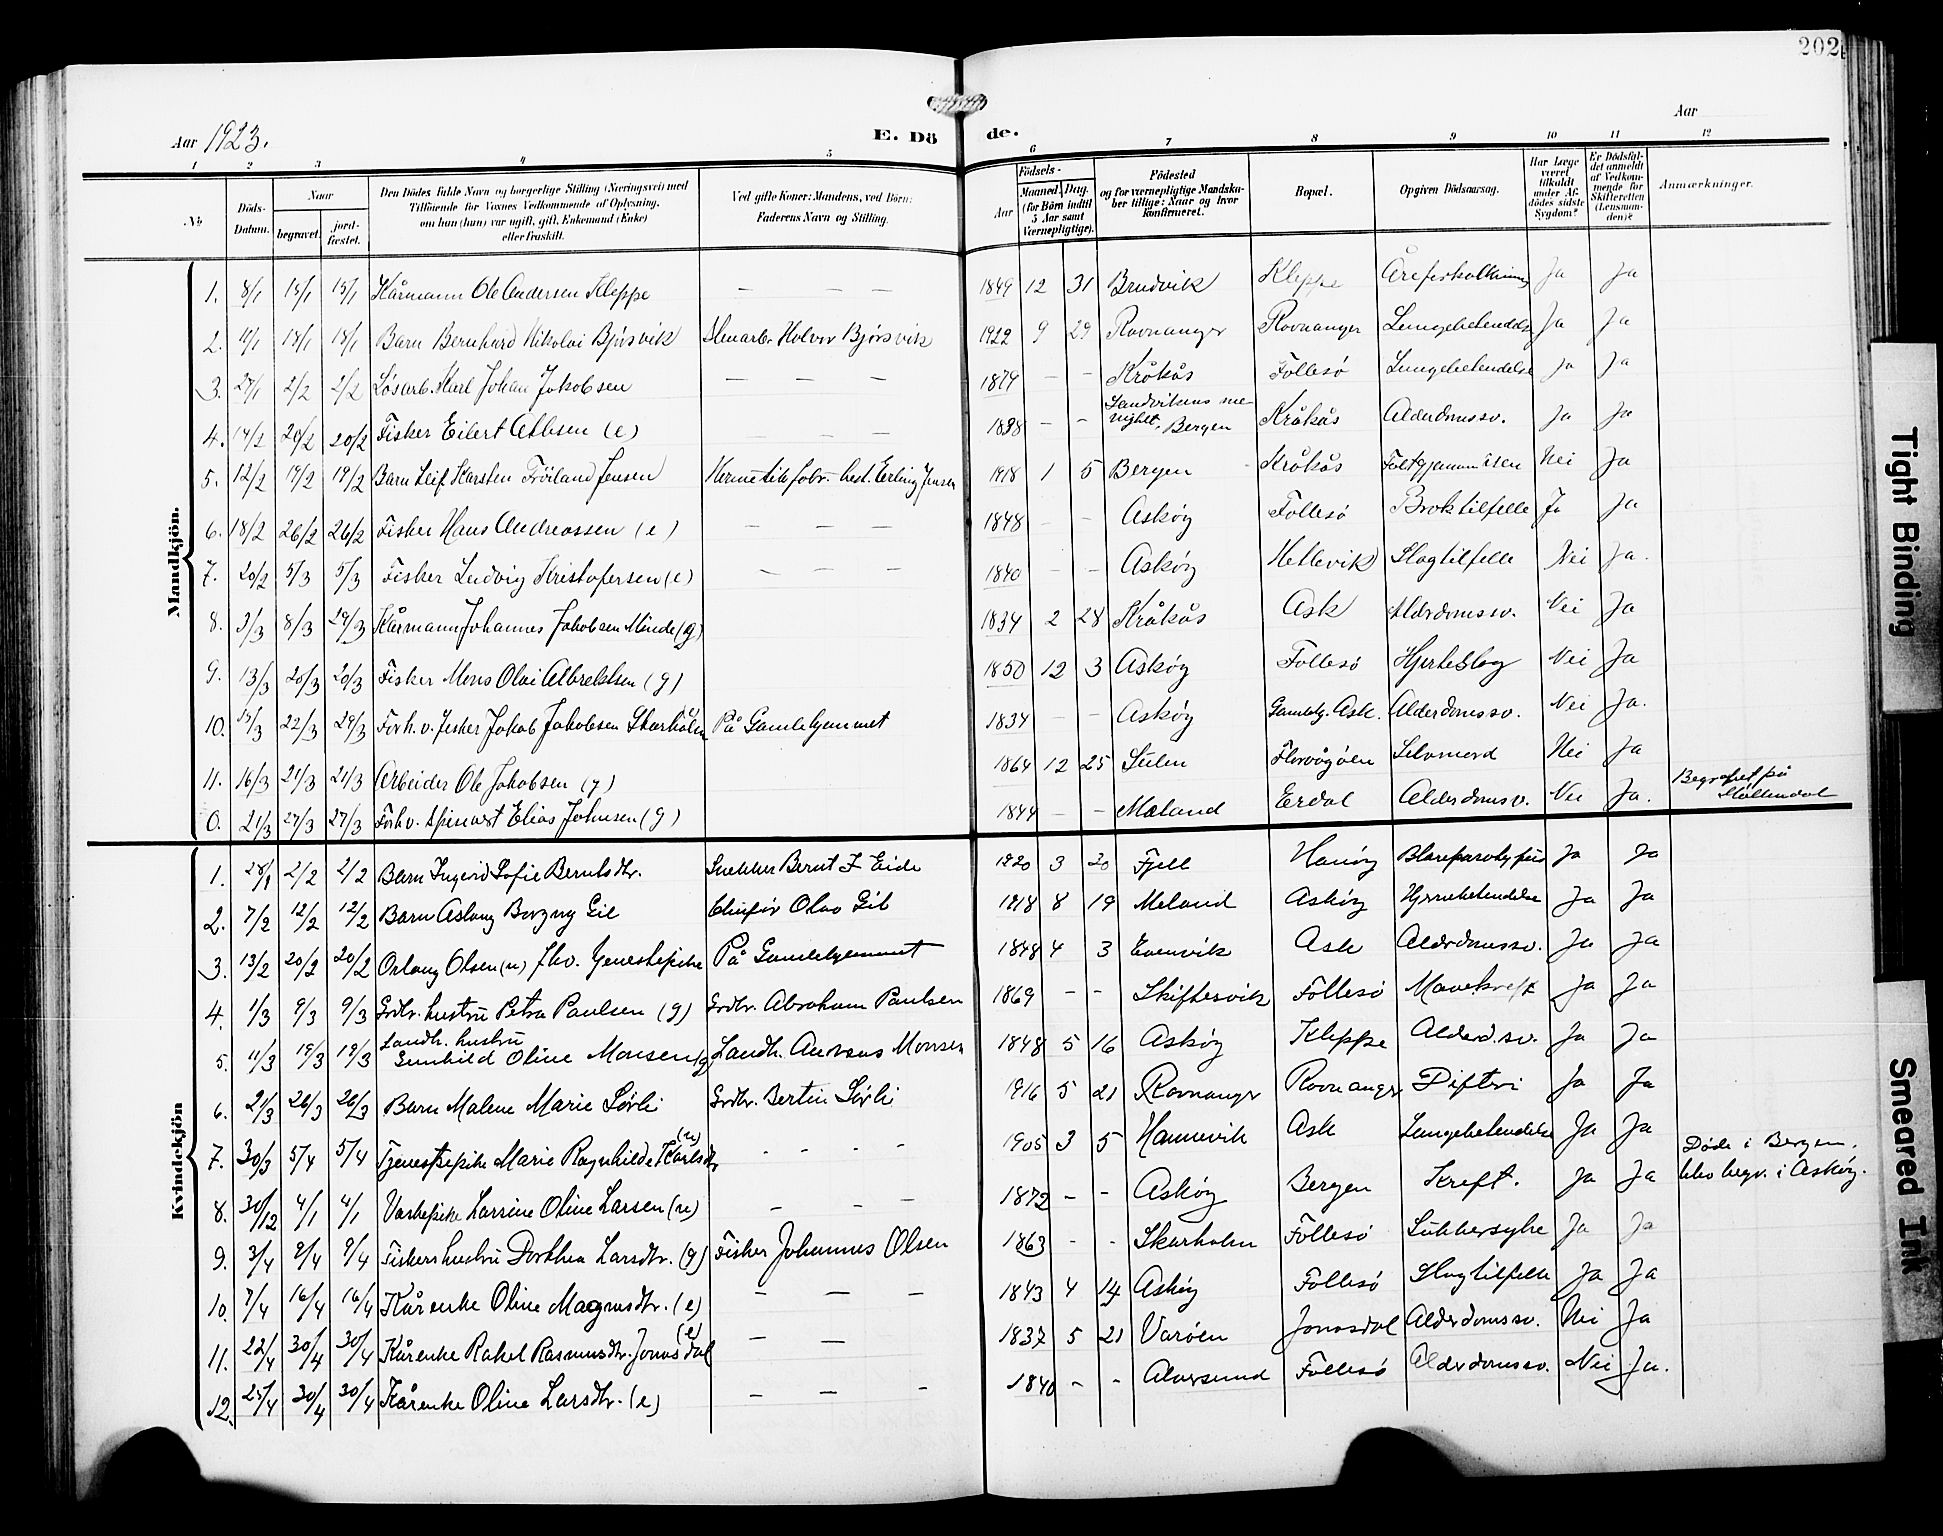 202
Aar 1923.
E. Dö de.
Aar
1 2 3 4 5 6 7 8 9 10 11 12
No
Döds-Datum.
Naar
begravet.
jord-fæstet.
Den Dödes fulde Navn og borgerlige Stilling (Næringsvei) med
Tilföiende for Voxnes Vedkommende af Oplysning,
om han (hun) var ugift, gift, Enkemand (Enke)
eller fraskilt.
Ved gifte Koner: Mandens, ved Börn:
Faderens Navn og Stilling.
Födsels-
Aar
Maaned. Dag.
(for Börn indtil
5 Aar samt
Værnepligtige).
Födested
og for værnepligtige Mandska-
ber tillige: Naar og hvor
konfirmeret.
Bopæl.
Opgiven Dödsaarsag.
Har Læge
været
tilkaldt
under Af-
dödes sidste
Sygdom?
Er Dödsfal-
det anmeldt
af Vedkom-
mende for
Skifteretten
(Lensman-
den)?
Anmærkninger.
Mandkjön.
1. 8/1 15/1 15/1 Kårmann Ole Andersen Kleppe — — — 1849 12 31 Bruvik Kleppe Åreforkalkning Ja Ja
2. 11/1 18/1 18/1 Barn Bernhard Nikolai Bjørsvik Stenarb. Halvor Bjørsvik 1922 9 29 Rovnanger Rovnanger Lungebetendelse Ja Ja
3. 27/1 2/2 2/2 Løsarb. Karl Johan Jakobsen — — — 1879 — — Kråkås Follesø Lungebetendelse Ja Ja
4. 14/2 20/2 20/2 Fisker Eilert Albsen (e) — — 1838 — — Sandvikens me-
nighet, Bergen Kråkås Alderdomssv. Ja Ja
5. 12/2 19/2 19/2 Barn Leif Karsten Frøiland Jensen Hermetikfabr. best. Erling Jensen 1918 1 5 Bergen Kråkås Falt gjennem isen Nei Ja
6. 18/2 26/2 26/2 Fisker Hans Andreassen (e) — — — 1848 — — Askøy Follesø Broktilfelle Ja Ja
7. 20/2 5/3 5/3 Fisker Ludvig Kristofersen (e) — — — 1840 — — Askøy Hetlevik Slagtilfelle Nei Ja.
8. 3/3 8/3 19/3 Kårmann Johannes Jakobsen Minde (g) 1834 2 28 Kråkås Ask Alderdomssv. Nei Ja
9. 13/3 20/3 20/3 Fisker Mons Olai Albrektsen (g) 1850 12 3 Askøy Follesø Hjerteslag Nei Ja
10. 15/3 22/3 29/3 Forh. v. fisker Jakob Jakobsen Skarholm På Gamlehjemmet 1834 — — Askøy Gamlehj. Ask. Alderdomssv. Nei Ja.
11. 16/3 21/3 21/3 Arbeider Ole Jakobsen (g) 1864 12 25 Stilen Florvågøen Selvmord Nei Ja
0. 21/3 27/3 27/3 Forhv. Elias Johnsen (g) 1844 — — Mæland Erdal Alderdomssv. Nei Ja. Begravet på
Møllendal
Kvindekjön
1. 28/1 2/2 2/2 Barn Ingerid Sofie Berntsdtr. Snekker Bernt J Eide 1920 3 20 Fjell Hanøy Ja Ja
2. 7/2 12/2 12/2 Barn Aslaug Borgny Gil Chaufør Olav Gil 1918 8 19 Meland Askøy Hjernebetendelse Ja Ja
3. 13/2 20/2 20/2 Oslaug Olsen (u) fhv. tjenestepike På Gamlehjemmet 1848 4 3 Evenvik Ask Alderdomssv. Ja Ja
4. 1/3 9/3 9/3 Grdbr. hustru Petra Paulsen (g) Grdbr. Abraham Paulsen 1869 — — Skiftesvik Follesø Mavekreft Ja Ja
5. 11/3 19/3 19/3 Landh. hustru
Gunhild Oline Monsen (g) Landh. Andreas Monsen 1848 5 16 Askøy Kleppe Alderd.sv. Ja Ja
6. 21/3 26/3 26/3 Barn Malene Marie Sørli Grdbr. Bertin Sørli 1916 5 21 Rovnanger Rovnanger Difteri Ja Ja
7. 30/3 5/4 5/4 Tjenestepike Marie Ragnhilde Karlsdtr (u) - - - 1905 3 5 Hannevik Ask Lungebetendelse Ja Ja
8. 30/12 4/1 4/1 Vaskepike Larsine Oline Larsen (u) — — — 1872 — — Askøy Bergen Kreft. Ja Ja Døde i Bergen.
blev begr. i Askøy.
9. 3/4 9/4 9/4 Fiskers hustru Dorthea Larsdtr. (g) Fisker Johannes Olsen 1863 - - Skarholm Follesø Sukkersyke Ja Ja
10. 7/4 16/4 16/4 Kårenke Oline Magnusdtr. (e) — — — 1843 4 14 Askøy Follesø Slagtilfelle Ja Ja
11. 22/4 30/4 30/4 Kårenke Rakel Rasmusdtr. Jonasdal (e) — — 1837 5 21 Varøen Jonasdal Alderdomssv. Nei Ja
12. 25/4 30/4 30/4 Kårenke Oline Larsdtr. (e) — — - 1840 - - Alversund Follesø Alderdomssv. Nei Ja.
Tight Binding
Smeared Ink